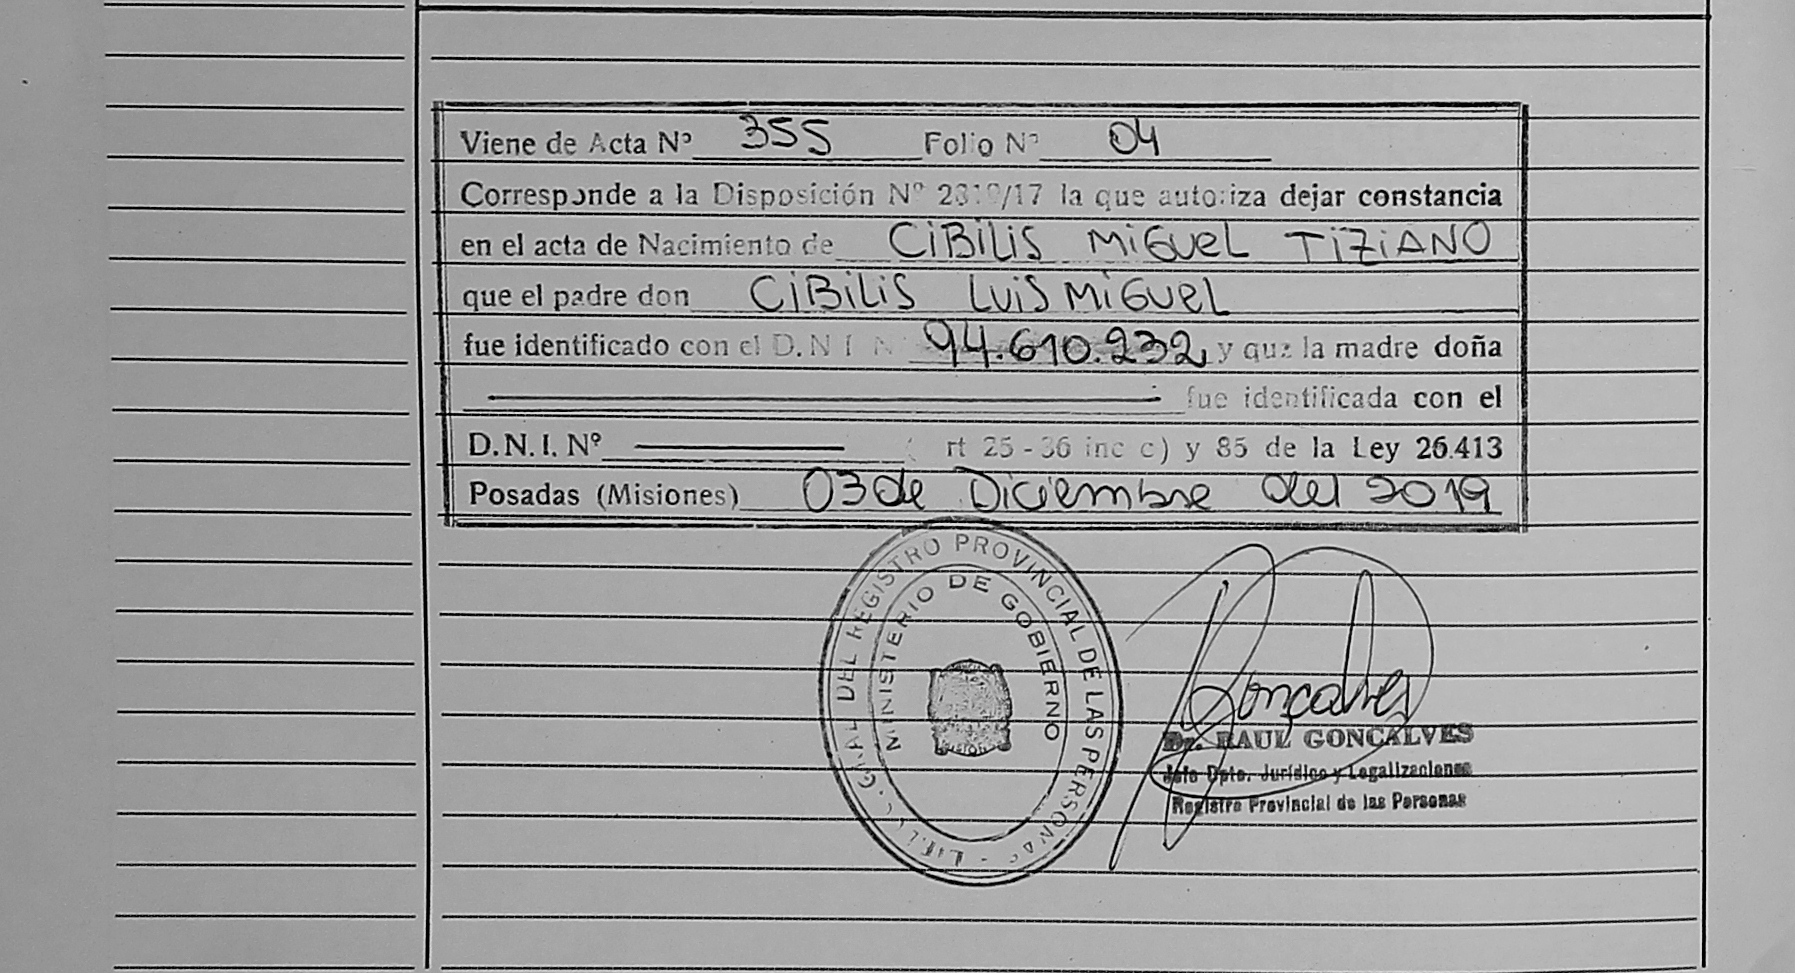 Viene de Acta Nº 355 Folio Nº 04
Corresponde a la Disposición Nº /17 la que autoriza dejar constancia
en el acta de Nacimiento de CiBiLiS MiGUeL TiZiANO
que el padre don CiBiLiS LUiS MiGUeL
fue identificado con el D.N I N 94.610.232, y que la madre doña
fue identificada con el
D.N.I. Nº rt 25 - 36 inc c) y 85 de la Ley 26.413
Posadas (Misiones) 03 de Diciembre del 2019
DEL REGISTRO PROVINCIAL DE LAS PERSONAS
MINISTERIO DE GOBIERNO
Gonçalves
Dr. RAUL GONCALVES
Jefe Dpto. Jurídico y Legalizaciones
Registro Provincial de las Personas